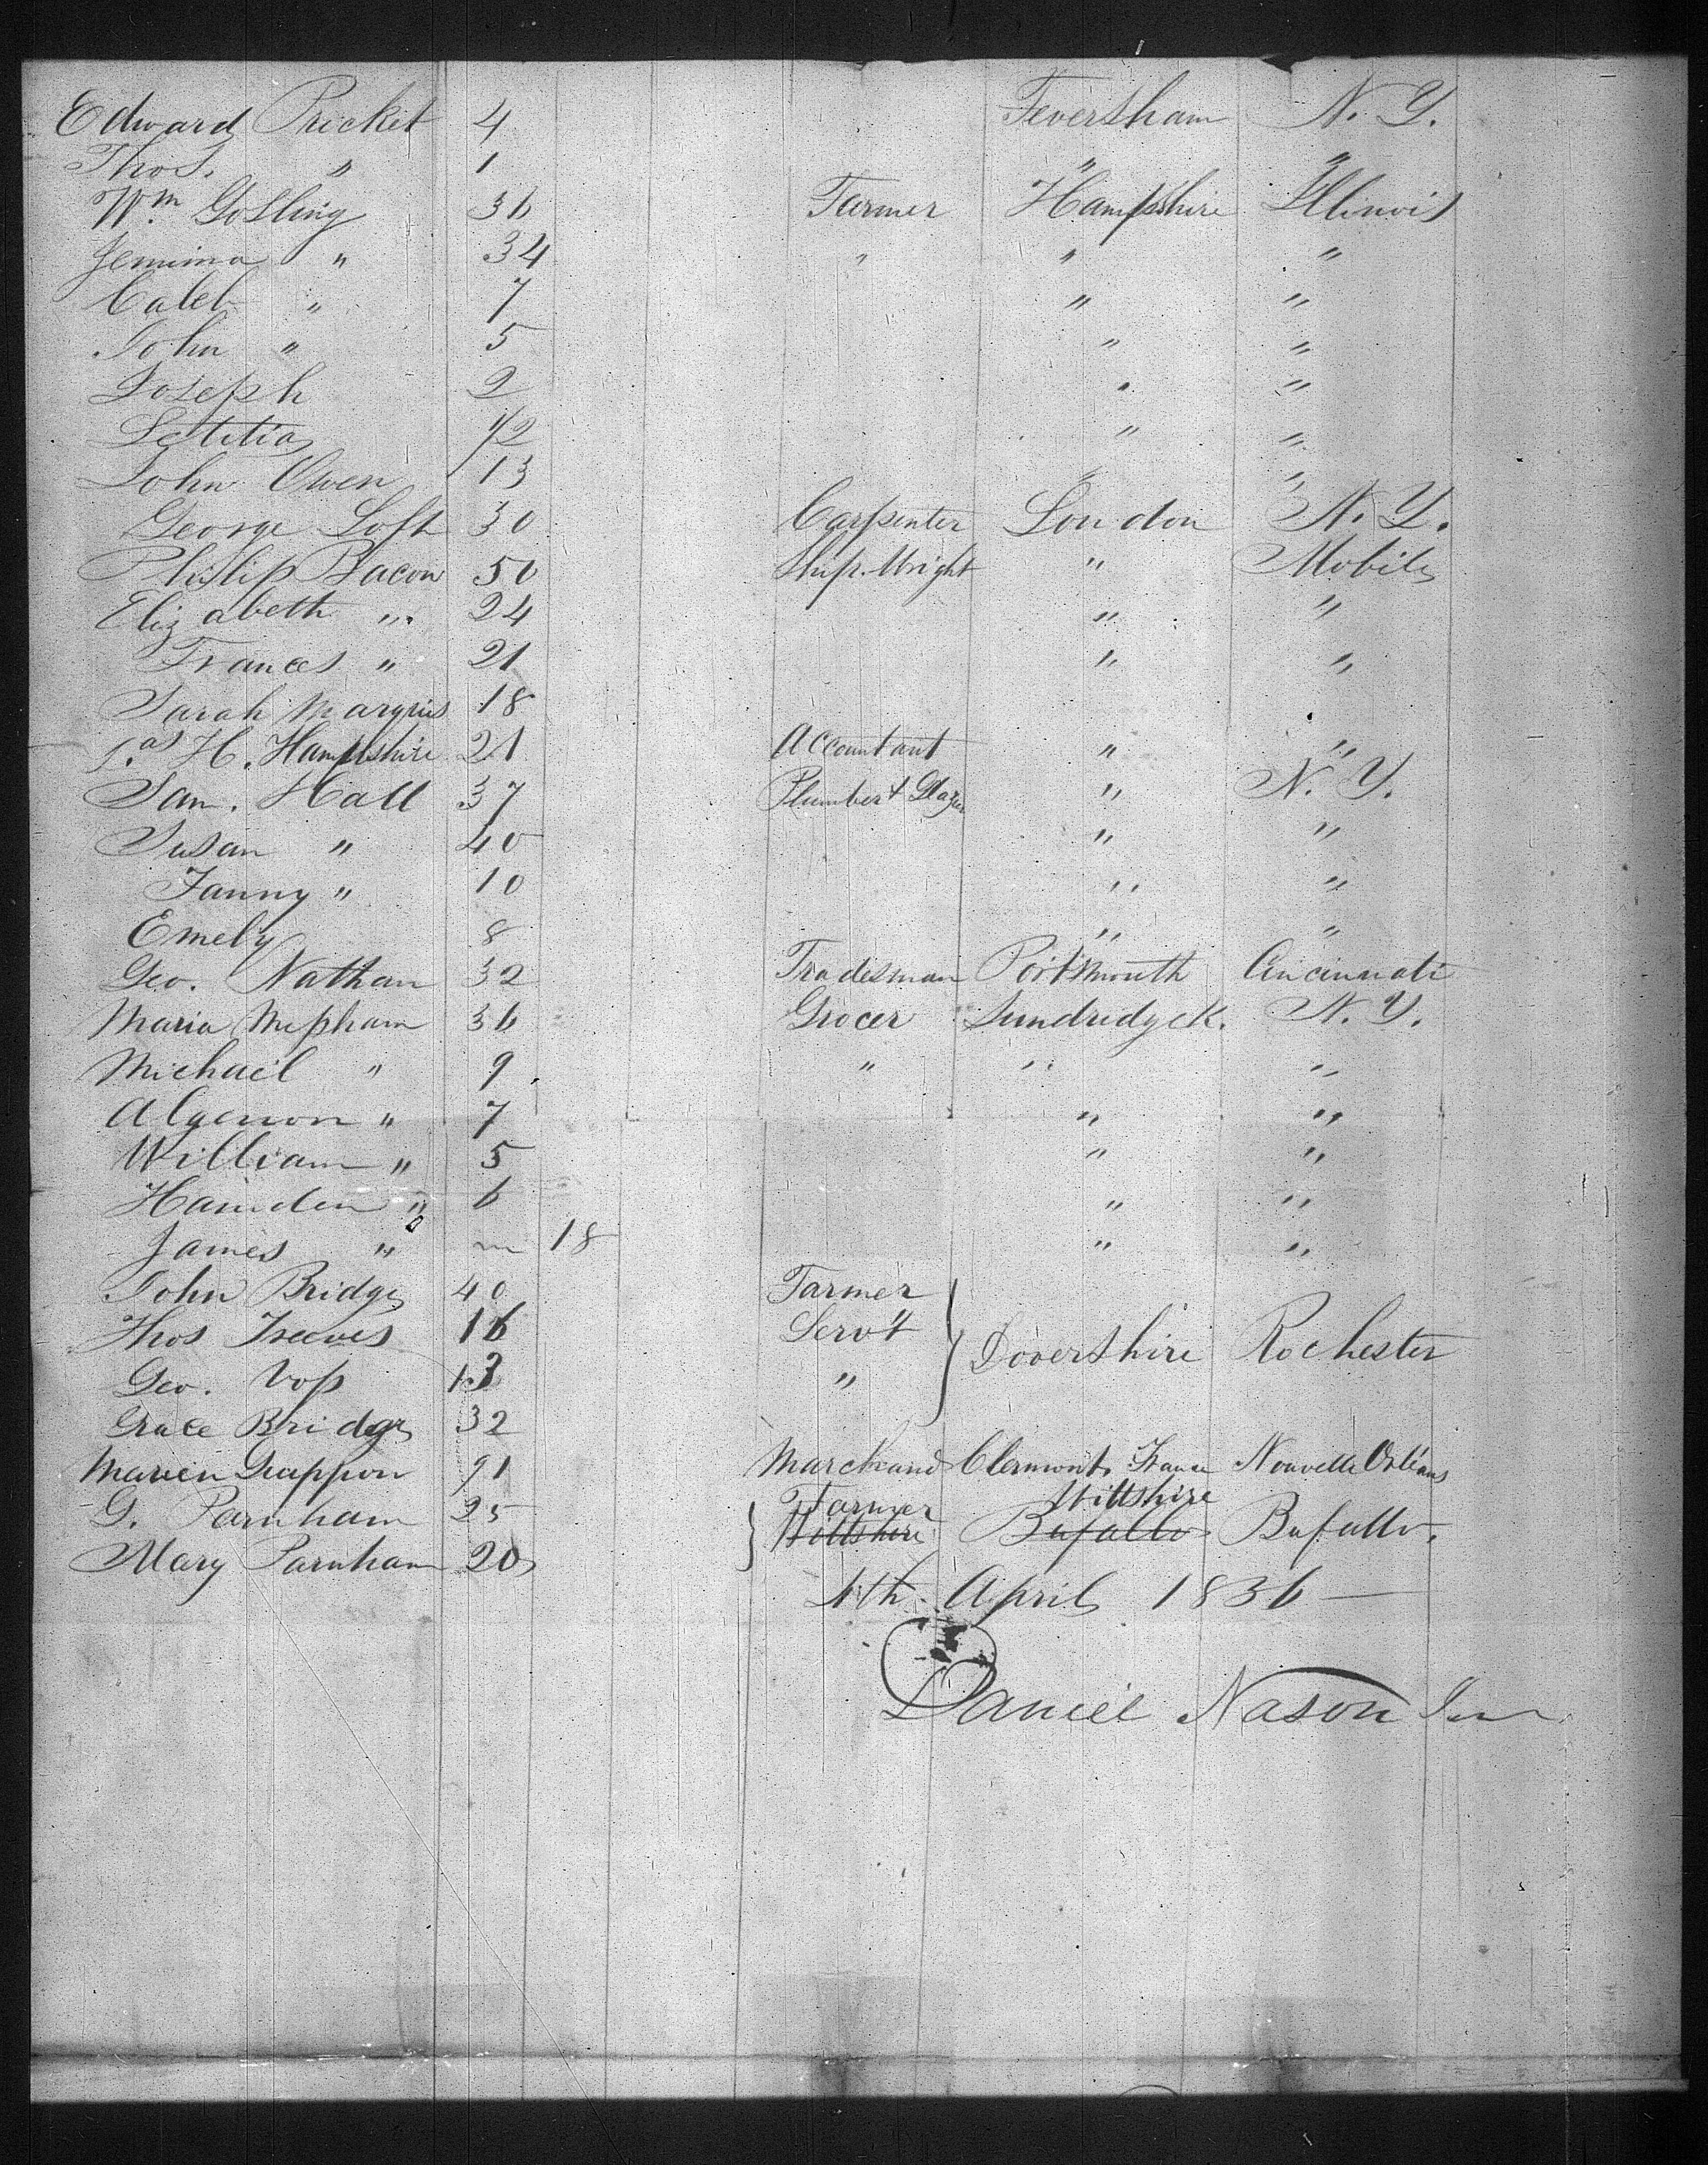 Edward Pricket 4 Feversham N. Y.
Thos. " 1 " "
Wm Gosling 36 Farmer Hampshire Illinois
Jemima " 34 " " "
Caleb " 7 " "
John " 5 " "
Joseph 2 " "
Letitia 1/2 " "
John Owen 13 " "
George Loft 30 Carpenter London N. Y.
Philip Bacon 50 Ship Wright " Mobile
Elizabeth " 24 " "
Frances " 21 " "
Sarah 18
Jas H. Hampshire 21 Accountant " "
Sam. Hall 37 Plumber & Glazier " N. Y.
Susan " 40 " "
Fanny " 10 " "
Emely 8 " "
Geo. Nathan 32 Tradesman Portsmouth Cincinnati
Maria Mepham 36 Grocer Sundridge K. N. Y.
Michael " 9 " " "
Algernon " 7 " "
William " 5 " "
Hamden " 6 " "
James " m 18 " "
John Bridge 40 Farmer
Thos 16 Servt Dovershire Rochester
Geo. Voss 13 "
Grace Bridge 32
Marchand Clermont France Nouvelle Orléans
G. Parnham 25 Farmer Wiltshire
Wiltshire Bufallo Bufallo.
Mary Parnham 20
4th April 1836
Daniel Nason Jun